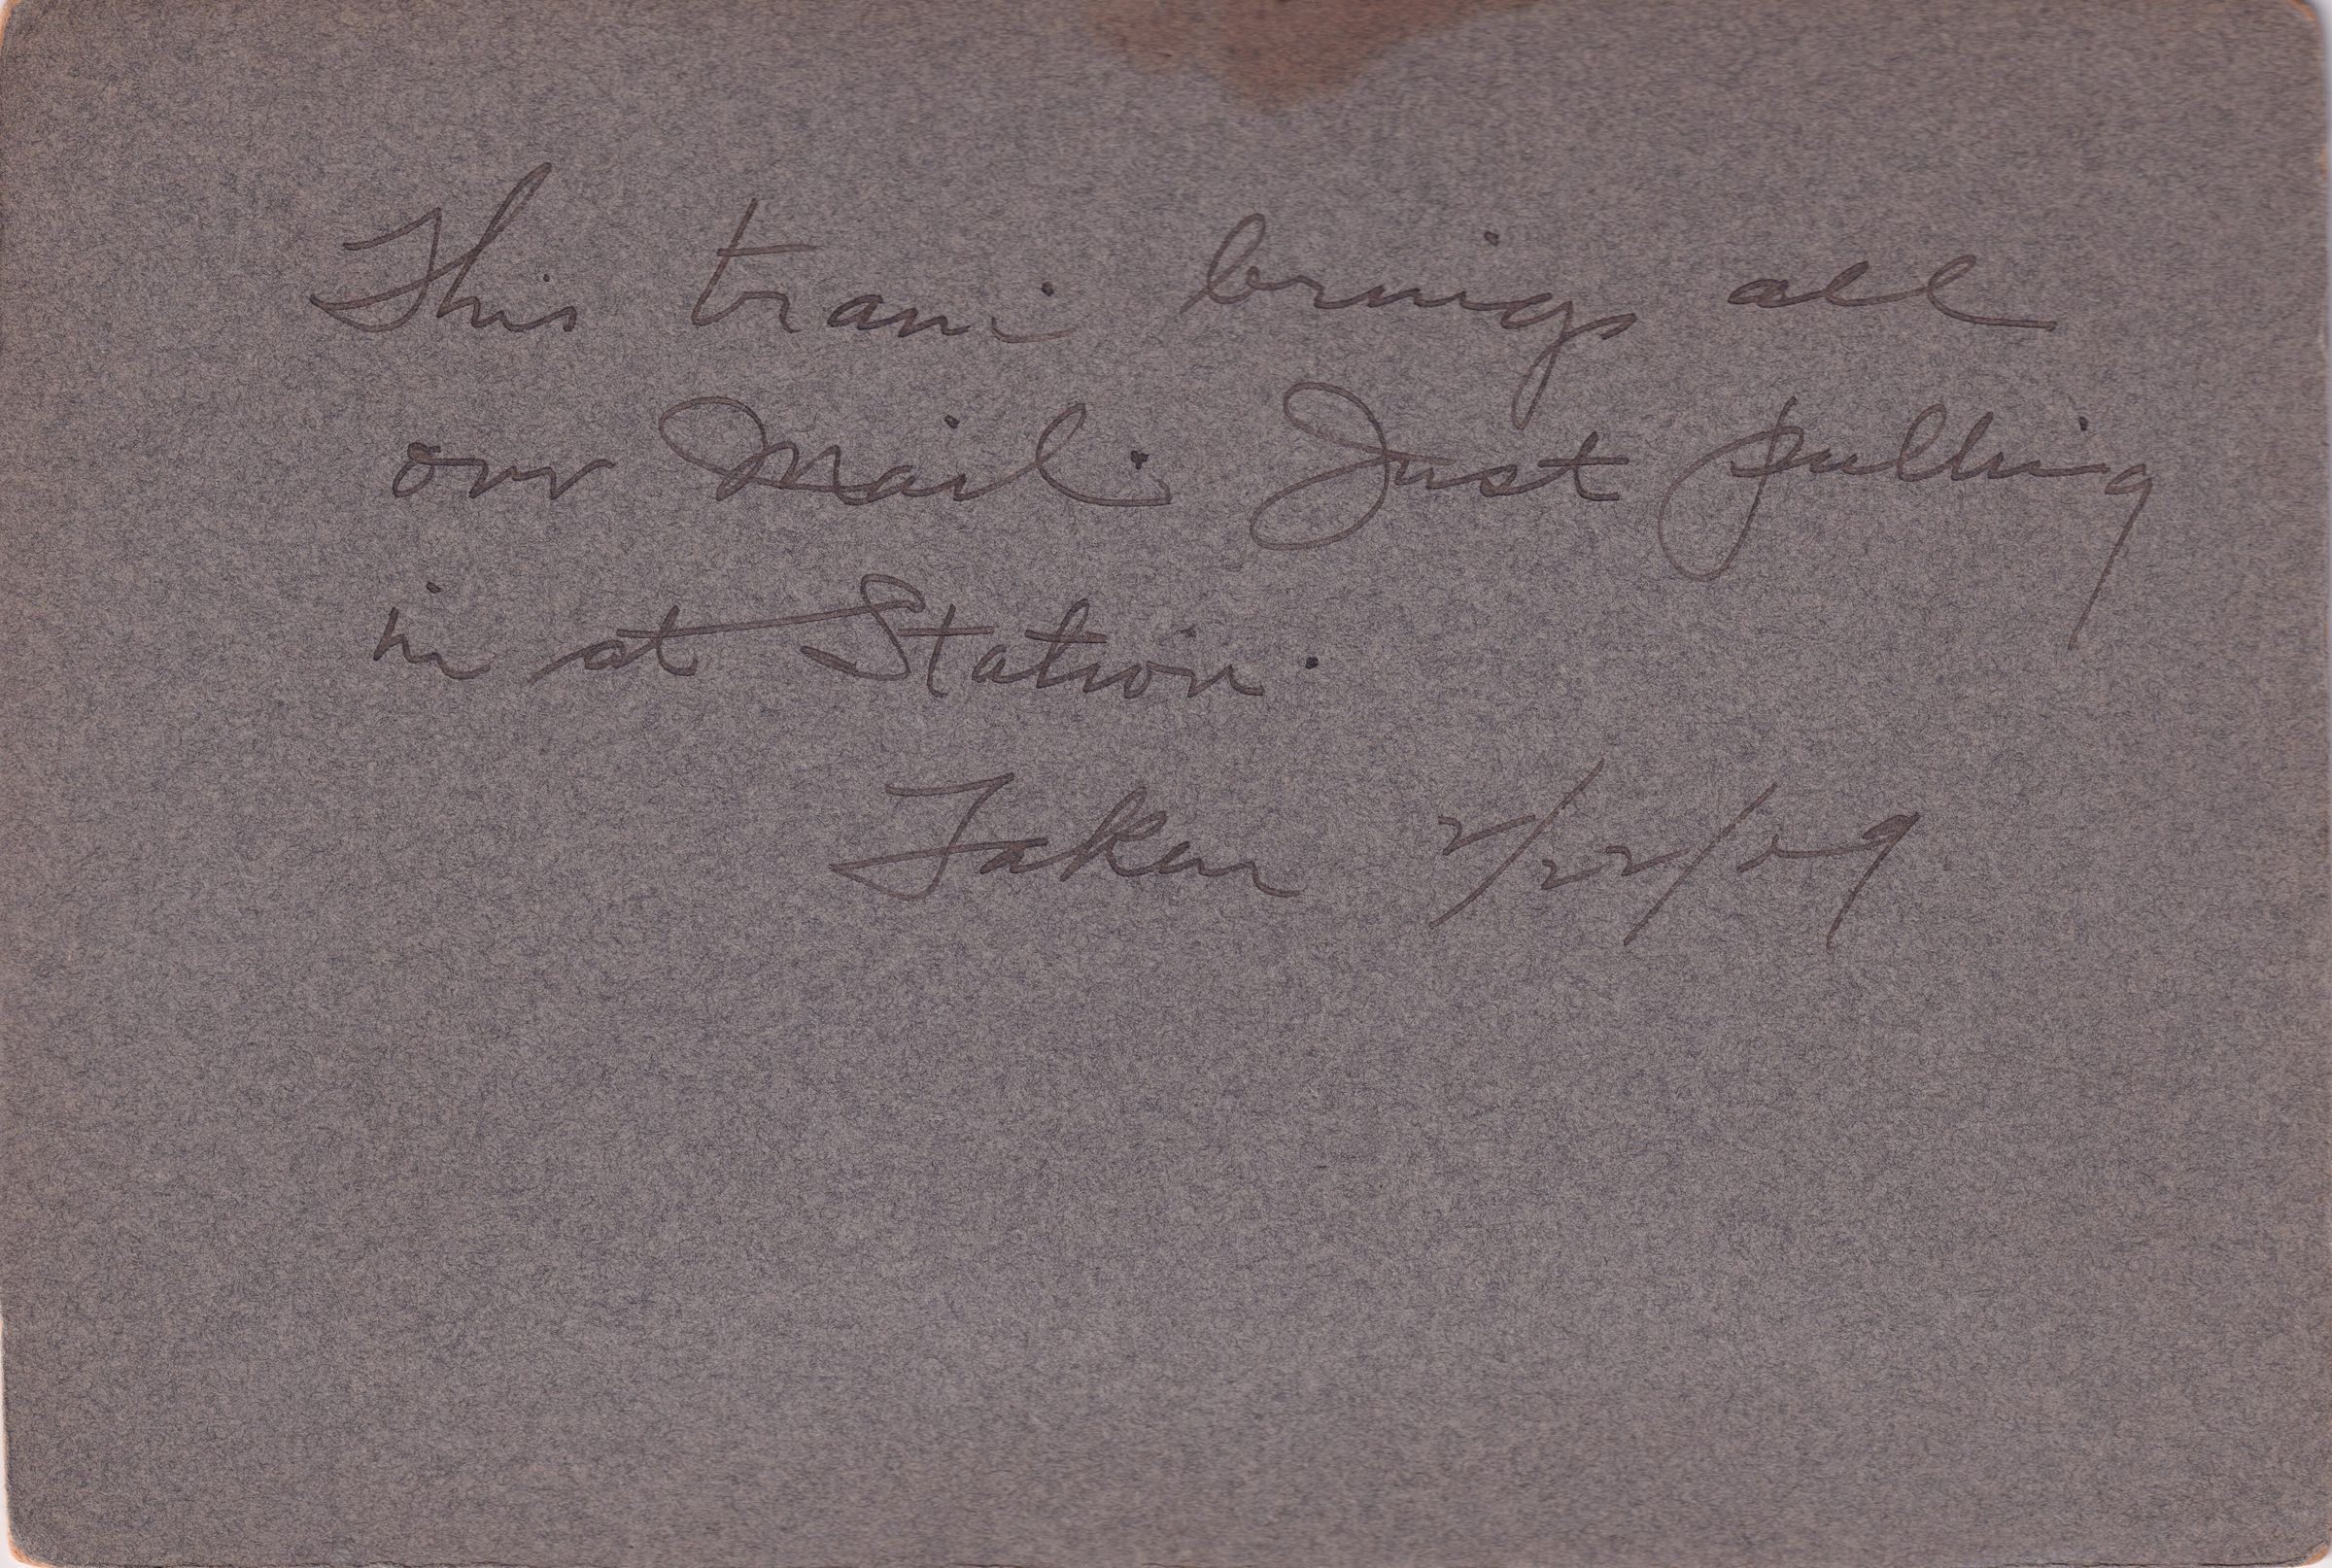 This train brings all
our Mail. Just pulling
in at Station.
Taken 2/22/09